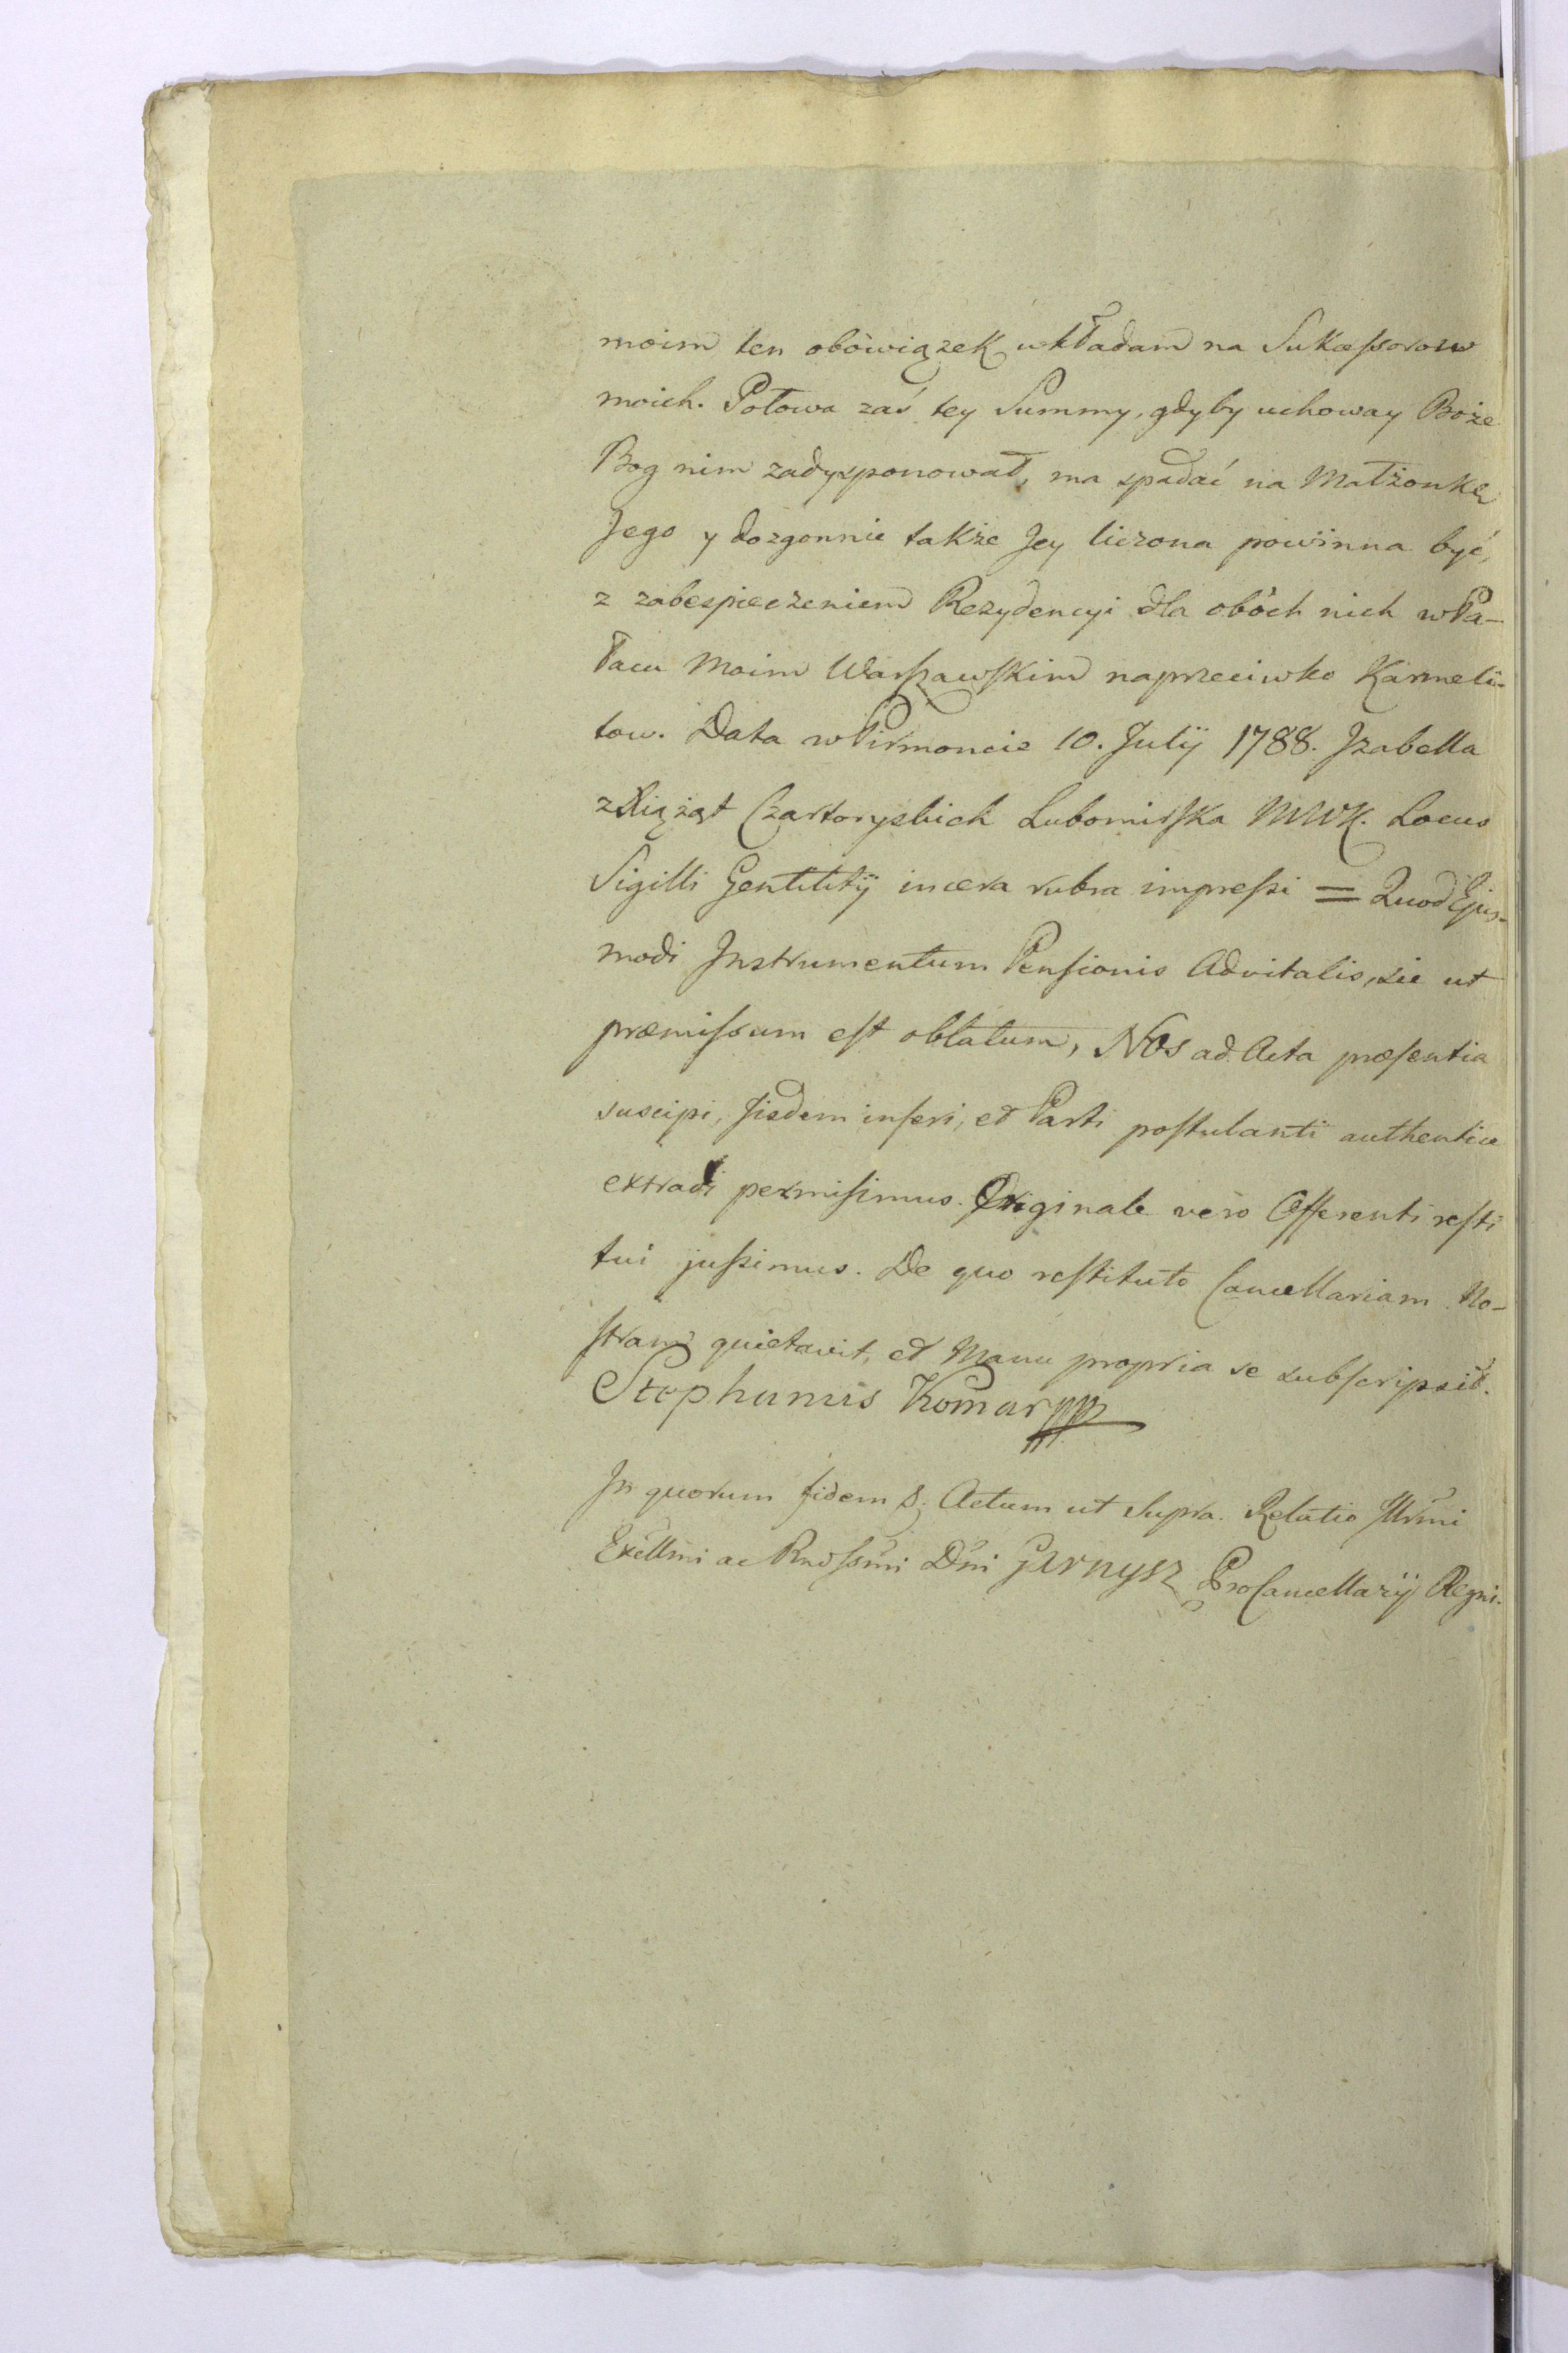 moim ten obowiązek wkładam na Sukcessorow
moich. Połowa zaś tey Summy, gdyby uchoway Boże
Bog nim zadysponował, ma spadać na Małżonkę
Jego y dozgonnie także Jey liczona powinna być,
z zabespieczeniem Rezydencyi dla obóch nich w Pa-
łacu Moim Warszawskim naprzeciwko Karmeli-
tow. Data w Pirmoncie 10. Julÿ 1788. Jzabella
z Xiążąt Czartoryskich Lubomirska MWK. Locus
Sigilli Gentilitÿ in cera rubra impressi = Quod Ejus-
modi Jnstrumentum Pensionis Advitalis, sic ut
præmissum est oblatum, Nos ad Acta præsentia
suscipi, jisdem inseri, et Parti postulanti authentice
extradi permisimus. Originale vero Offerenti resti
tui jussimus. De quo restituto Cancellariam No-
stram quietavit, et Manu propria se subscripsit.
Stephanus Komar mpp
Jn quorum fidem &. Actum ut Supra. Relatio Jllrmi
Excllmi ac Rndssmi Dni Garnysz ProCancellarÿ Regni.